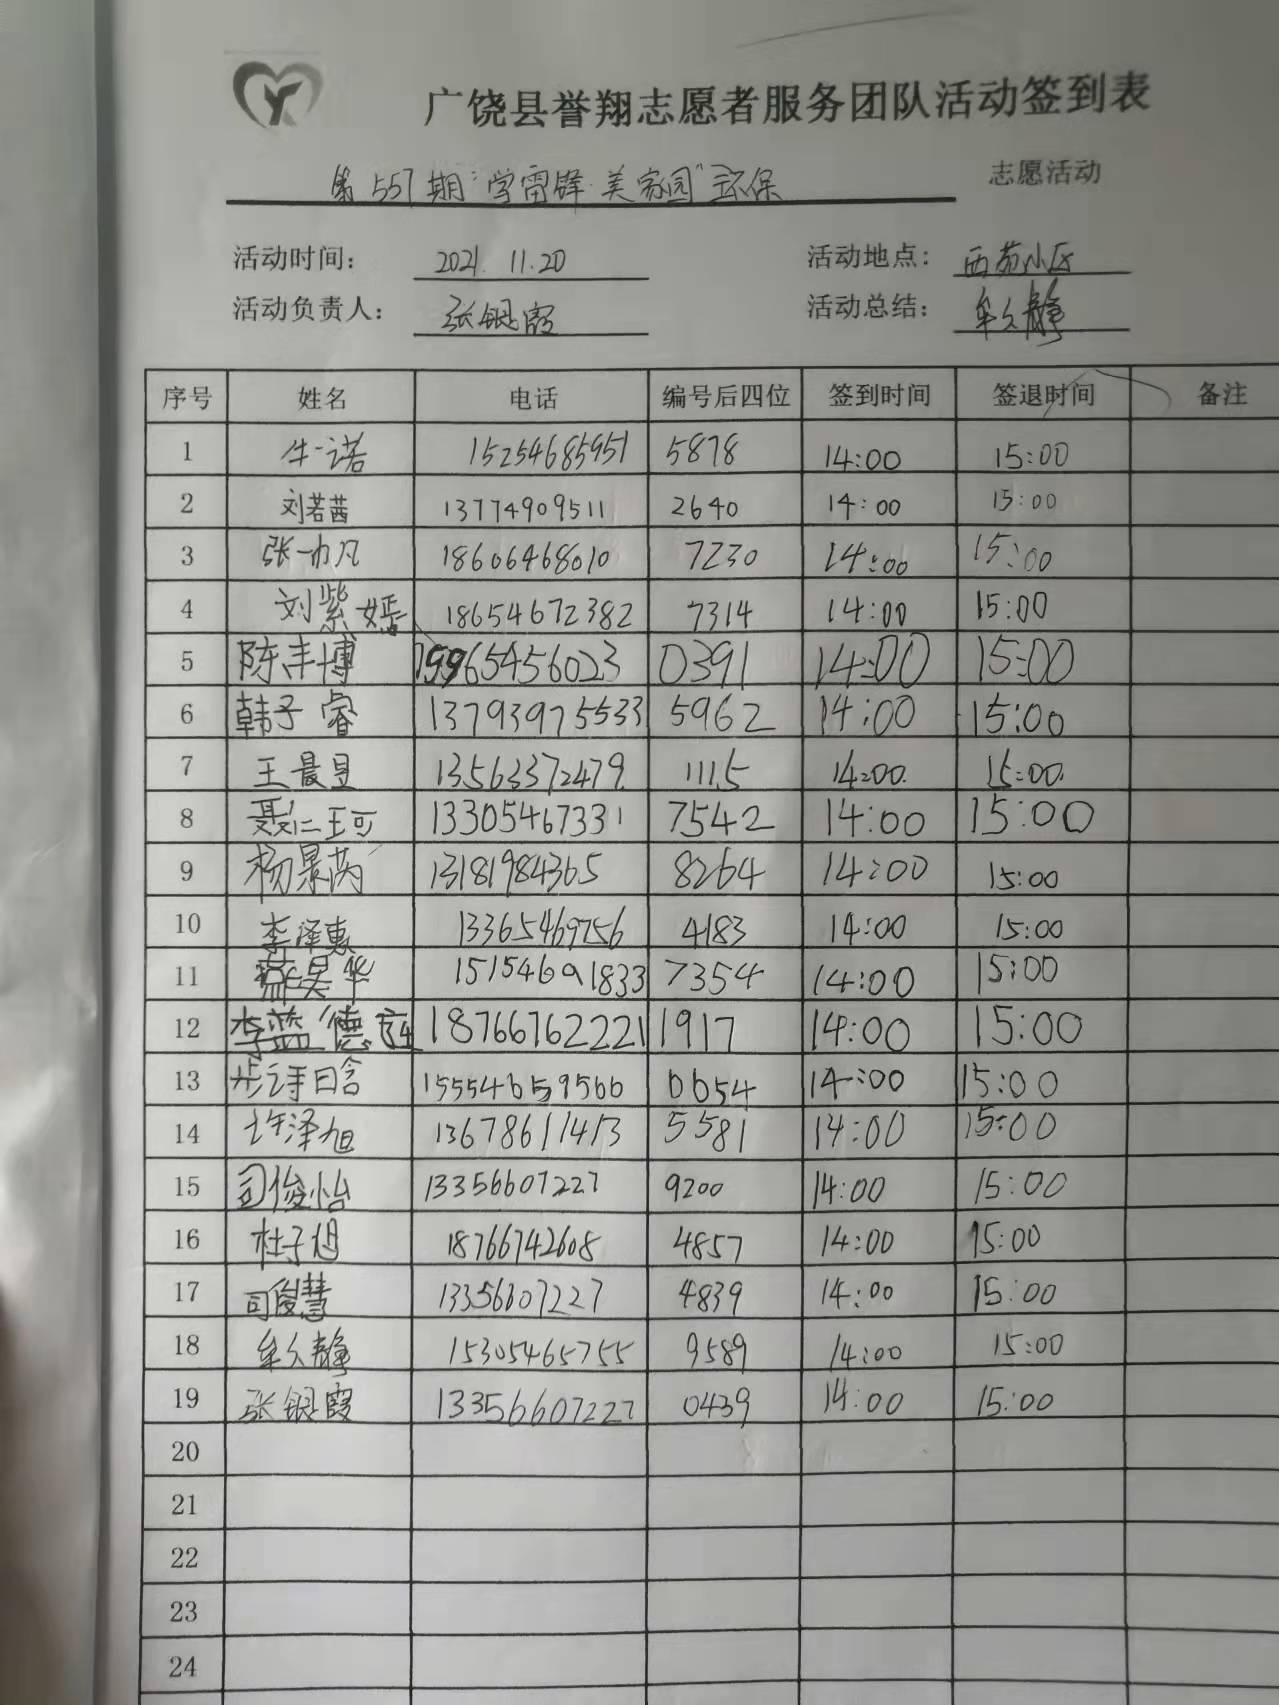 广饶县誉翔志愿者服务团队活动签到表
第557期“学雷锋·美家园”环保 志愿活动
活动时间： 2021.11.20 活动地点： 西苑小区
活动负责人： 张银霞 活动总结： 牟久静
序号 姓名 电话 编号后四位 签到时间 签退时间 备注
1 牛一诺 15254685951 5878 14:00 15:00
2 刘若茜 13774909511 2640 14:00 15:00
3 张一凡 18606468010 7230 14:00 15:00
4 刘紫嫣 18654672382 7314 14:00 15:00
5 陈丰博 19965456023 0391 14:00 15:00
6 韩子睿 13793975533 5962 14:00 15:00
7 王晨昱 13563372479 1115 14:00 15:00
8 聂仁珂 13305467331 7542 14:00 15:00
9 杨景芮 13181984365 8264 14:00 15:00
10 李泽惠 13365469756 4183 14:00 15:00
11 昊华 15154691833 7354 14:00 15:00
12 李蓝德 18766762221 1917 14:00 15:00
13 15554659566 0654 14:00 15:00
14 许泽旭 13678611413 5581 14:00 15:00
15 司俊怡 13356607227 9200 14:00 15:00
16 杜子旭 18766742608 4857 14:00 15:00
17 司俊慧 13356607227 4839 14:00 15:00
18 牟久静 15305465755 9589 14:00 15:00
19 张银霞 13356607227 0439 14:00 15:00
20
21
22
23
24